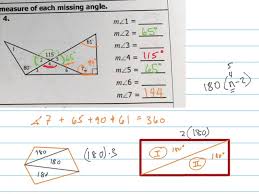 measure of each missing angle.
4.
115
65°
80°
61
m∠1 =
m∠2 = 65°
m∠3 =
m∠4 = 115°
m∠5 = 65°
m∠6 =
m∠7 = 144
180(n-2)
∠7 + 65 + 90 + 61 = 360
2(180)
180
180
180
(180)·3
I 180°
II 180°